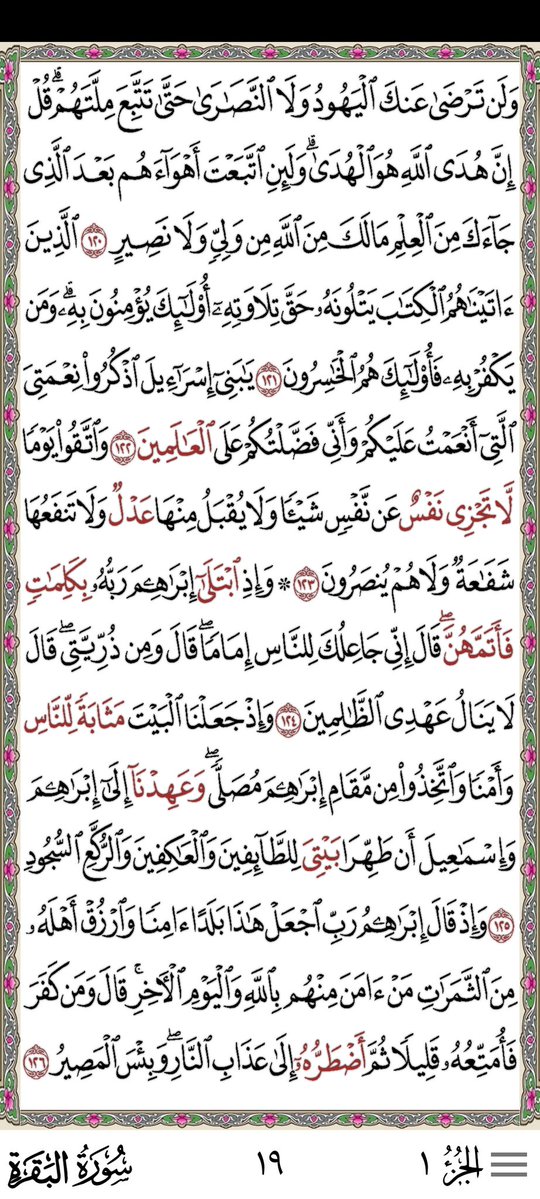 وَلَن تَرْضَىٰ عَنكَ ٱلْيَهُودُ وَلَا ٱلنَّصَٰرَىٰ حَتَّىٰ تَتَّبِعَ مِلَّتَهُمْ ۗ قُلْ
إِنَّ هُدَى ٱللَّهِ هُوَ ٱلْهُدَىٰ ۗ وَلَئِنِ ٱتَّبَعْتَ أَهْوَآءَهُم بَعْدَ ٱلَّذِى
جَآءَكَ مِنَ ٱلْعِلْمِ مَا لَكَ مِنَ ٱللَّهِ مِن وَلِىٍّ وَلَا نَصِيرٍ ١٢٠ ٱلَّذِينَ
ءَاتَيْنَٰهُمُ ٱلْكِتَٰبَ يَتْلُونَهُۥ حَقَّ تِلَاوَتِهِۦٓ أُو۟لَٰٓئِكَ يُؤْمِنُونَ بِهِۦ ۗ وَمَن
يَكْفُرْ بِهِۦ فَأُو۟لَٰٓئِكَ هُمُ ٱلْخَٰسِرُونَ ١٢١ يَٰبَنِىٓ إِسْرَٰٓءِيلَ ٱذْكُرُوا۟ نِعْمَتِىَ
ٱلَّتِىٓ أَنْعَمْتُ عَلَيْكُمْ وَأَنِّى فَضَّلْتُكُمْ عَلَى ٱلْعَٰلَمِينَ ١٢٢ وَٱتَّقُوا۟ يَوْمًا
لَّا تَجْزِى نَفْسٌ عَن نَّفْسٍ شَيْـًٔا وَلَا يُقْبَلُ مِنْهَا عَدْلٌ وَلَا تَنفَعُهَا
شَفَٰعَةٌ وَلَا هُمْ يُنصَرُونَ ١٢٣ ۞ وَإِذِ ٱبْتَلَىٰٓ إِبْرَٰهِـۧمَ رَبُّهُۥ بِكَلِمَٰتٍ
فَأَتَمَّهُنَّ ۖ قَالَ إِنِّى جَاعِلُكَ لِلنَّاسِ إِمَامًا ۖ قَالَ وَمِن ذُرِّيَّتِى ۖ قَالَ
لَا يَنَالُ عَهْدِى ٱلظَّٰلِمِينَ ١٢٤ وَإِذْ جَعَلْنَا ٱلْبَيْتَ مَثَابَةً لِّلنَّاسِ
وَأَمْنًا وَٱتَّخِذُوا۟ مِن مَّقَامِ إِبْرَٰهِـۧمَ مُصَلًّى ۖ وَعَهِدْنَآ إِلَىٰٓ إِبْرَٰهِـۧمَ
وَإِسْمَٰعِيلَ أَن طَهِّرَا بَيْتِىَ لِلطَّآئِفِينَ وَٱلْعَٰكِفِينَ وَٱلرُّكَّعِ ٱلسُّجُودِ
١٢٥ وَإِذْ قَالَ إِبْرَٰهِـۧمُ رَبِّ ٱجْعَلْ هَٰذَا بَلَدًا ءَامِنًا وَٱرْزُقْ أَهْلَهُۥ
مِنَ ٱلثَّمَرَٰتِ مَنْ ءَامَنَ مِنْهُم بِٱللَّهِ وَٱلْيَوْمِ ٱلْءَاخِرِ ۖ قَالَ وَمَن كَفَرَ
فَأُمَتِّعُهُۥ قَلِيلًا ثُمَّ أَضْطَرُّهُۥٓ إِلَىٰ عَذَابِ ٱلنَّارِ ۖ وَبِئْسَ ٱلْمَصِيرُ ١٢٦
الجُزْءُ ١ ١٩ سُورَةُ البَقَرَةِ